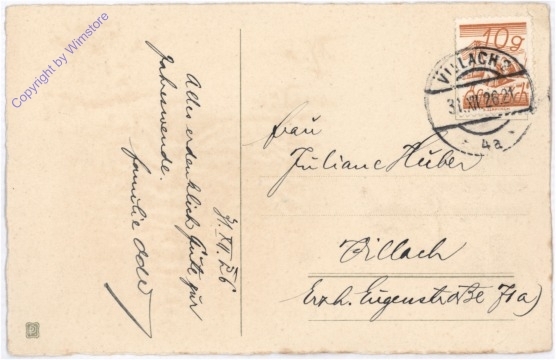 Copyright by Wimstore
31. XII. 26
Alles erdenklich Gute zur
Jahreswende.
Familie
10g
VILLACH 2
31.XII.26.21
4a
Frau
Juliane Huber
Villach
Erzh. Eugenstraße 7a)